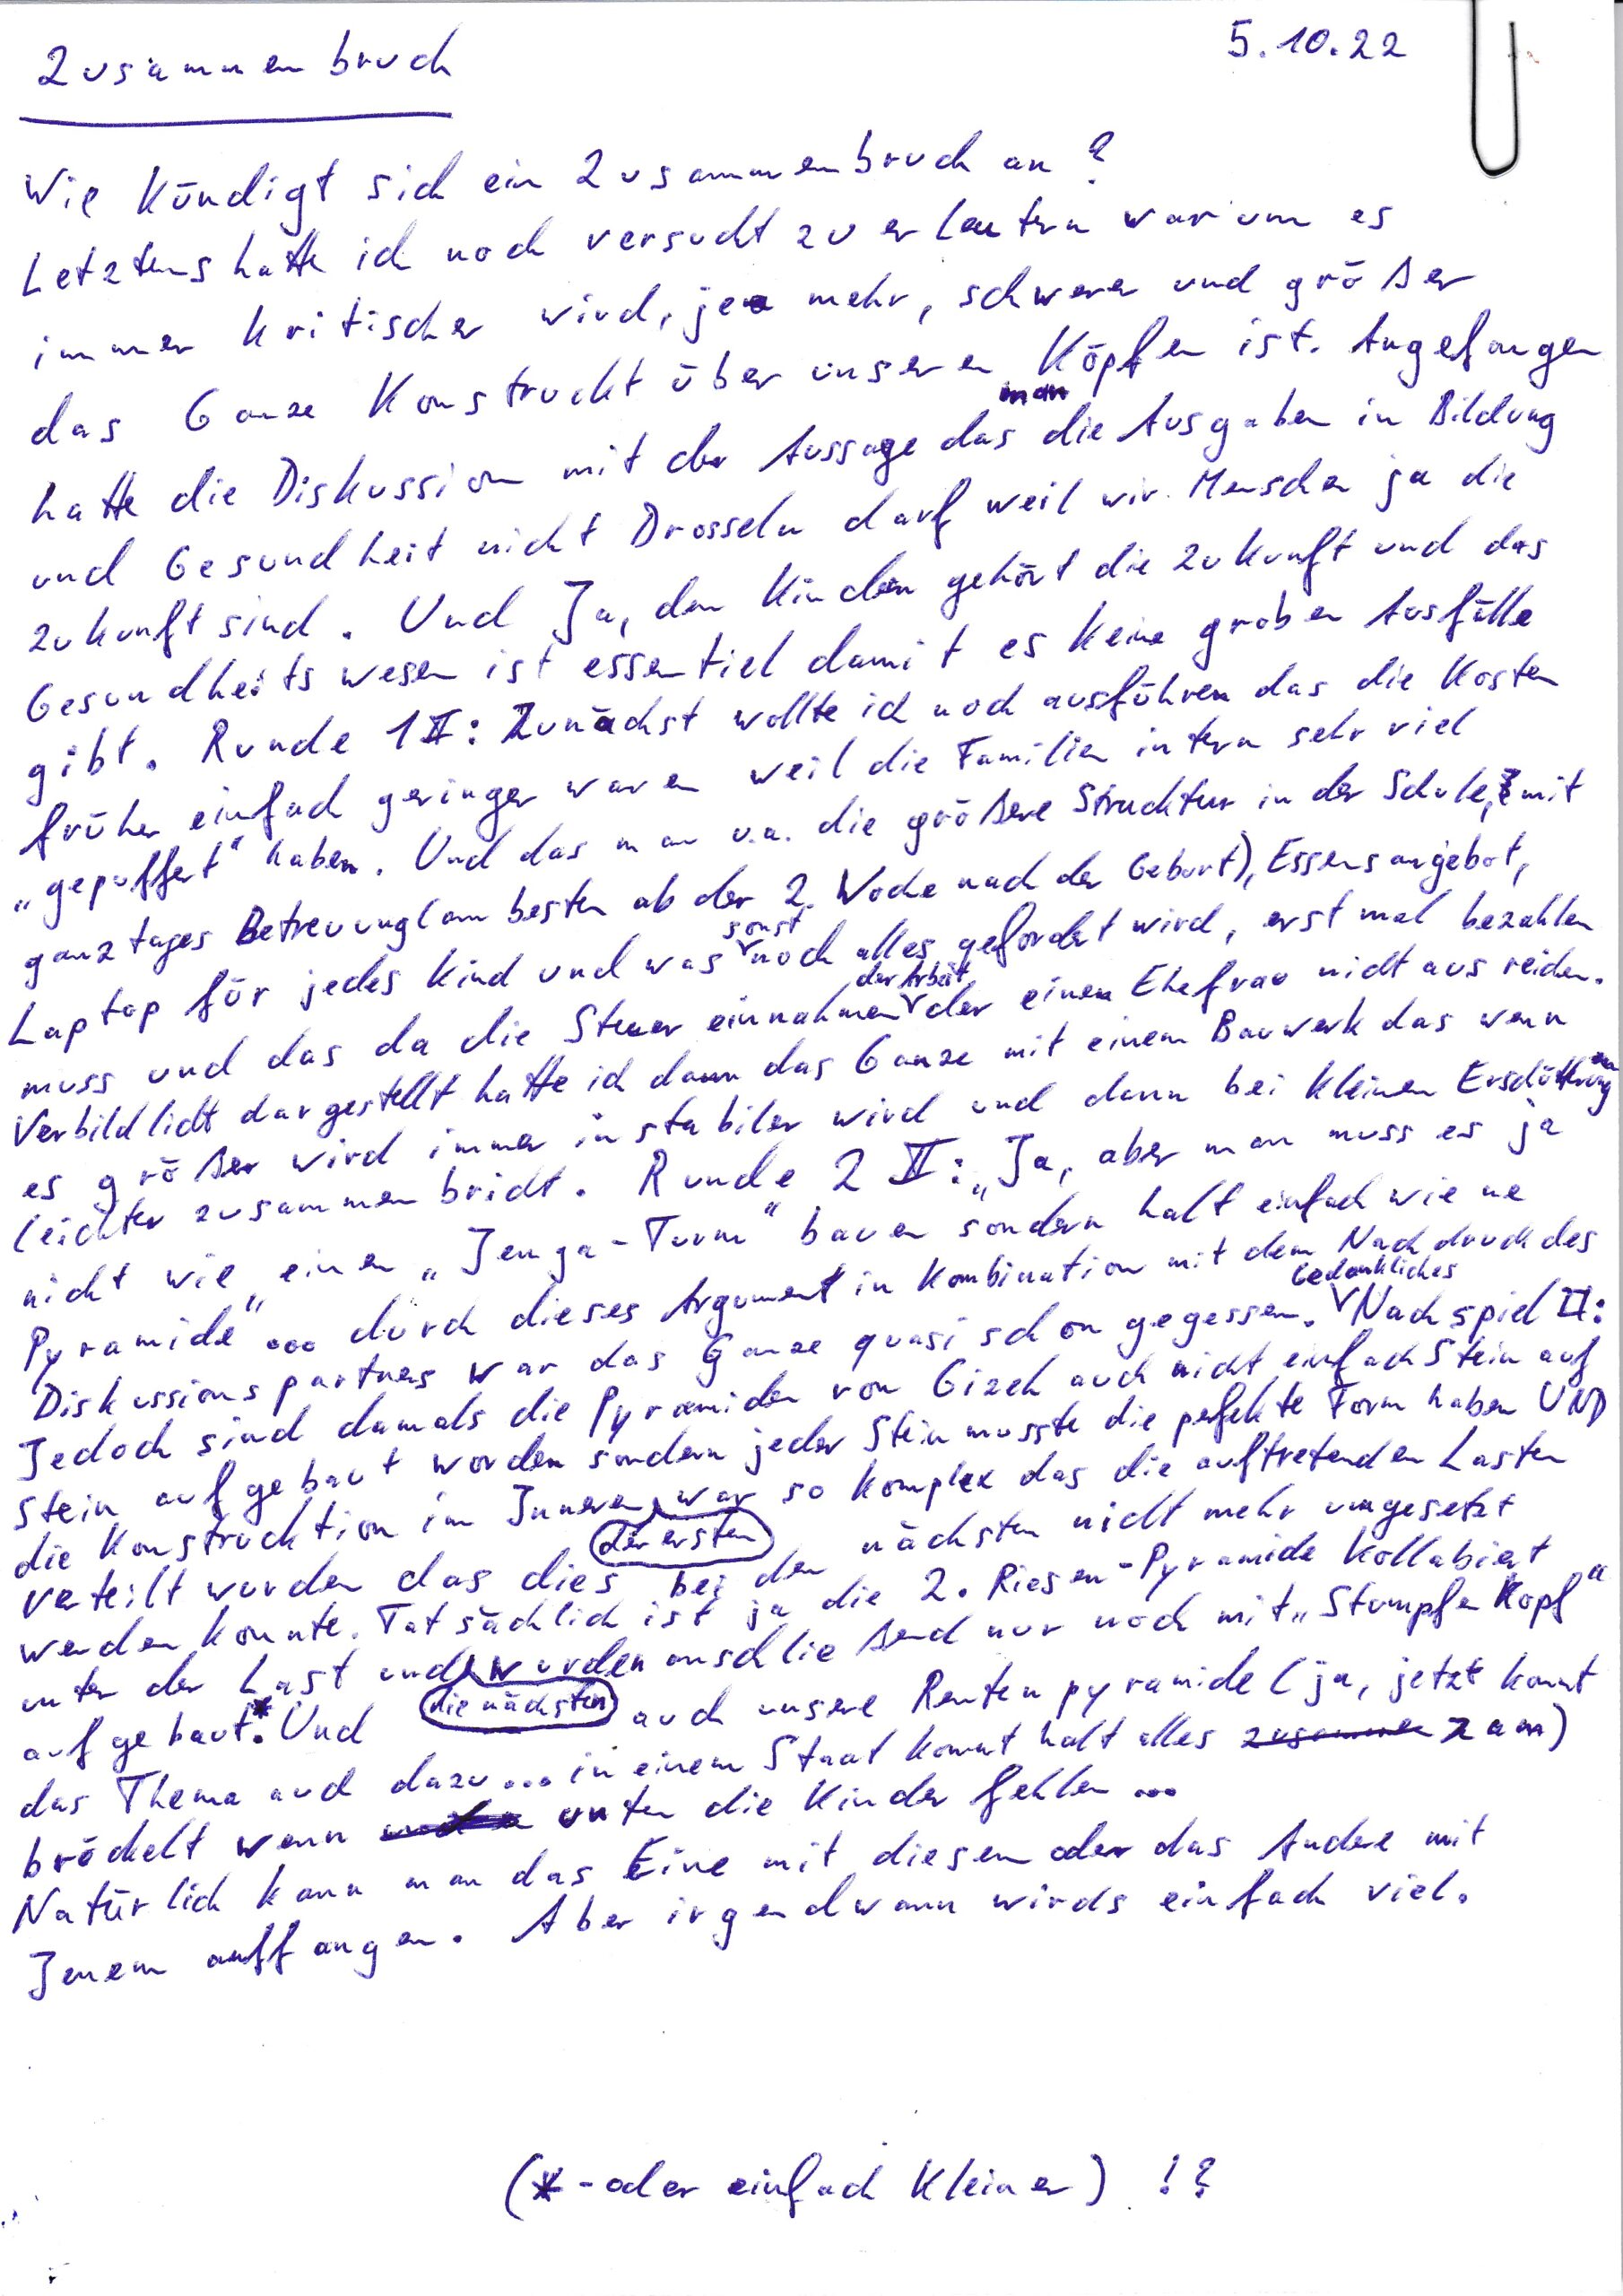 Zusammenbruch
5.10.22
Wie kündigt sich ein Zusammenbruch an?
Letztens hatte ich noch versucht zu erleutern warum es
immer kritischer wird, je mehr, schwerer und größer
das Ganze Konstruckt über unseren Köpfen ist. Angefangen
hatte die Diskussion mit der Aussage das man die Ausgaben in Bildung
und Gesundheit nicht Drosseln darf weil wir Menschen ja die
Zukunft sind. Und Ja, den Kindern gehört die Zukunft und das
Gesundheitswesen ist essentiel damit es keine groben Ausfälle
gibt. Runde 1 II: Zunächst wollte ich noch ausführen das die Kosten
früher einfach geringer waren weil die Familien intern sehr viel
„gepuffert“ haben. Und das man u.a. die größere Strucktur in der Schule, mit
ganztages Betreuung(am besten ab der 2. Woche nach der Geburt), Essensangebot,
Laptop für jedes Kind und was sonst noch alles gefordert wird, erst mal bezahlen
muss und das da die Steuereinnahmen der Arbeit der einen Ehefrau nicht aus reichen.
Verbildlicht dargestellt hatte ich dann das Ganze mit einem Bauwerk das wenn
es größer wird immer instabiler wird und dann bei kleinen Erschütterungen
leichter zusammenbricht. Runde 2 II: „Ja, aber man muss es ja
nicht wie einen „Jenga-Turm“ bauen sondern halt einfach wie ne
Pyramide“... durch dieses Argument in Kombination mit dem Nachdruck des
Diskussionspartners war das Ganze quasi schon gegessen. Gedankliches Nachspiel II:
Jedoch sind damals die Pyramiden von Gizeh auch nicht einfach Stein auf
Stein aufgebaut worden sondern jeder Stein musste die perfekte Form haben UND
die Konstrucktion im Inneren der ersten war so komplex das die auftretenden Lasten
verteilt wurden das dies bei den nächsten nicht mehr umgesetzt
werden konnte. Tatsächlich ist ja die 2. Riesen-Pyramide kollabiert
unter der Last und die nächsten wurden anschließend nur noch mit „Stumpfen Kopf“
aufgebaut*. Und auch unsere Rentenpyramide (ja, jetzt kommt
das Thema auch dazu... in einem Staat kommt halt alles zusammen zam)
bröckelt wenn unten die Kinder fehlen...
Natürlich kann man das Eine mit diesem oder das Andere mit
Jenem auffangen. Aber irgendwann wirds einfach viel.
(*-oder einfach kleiner) !?